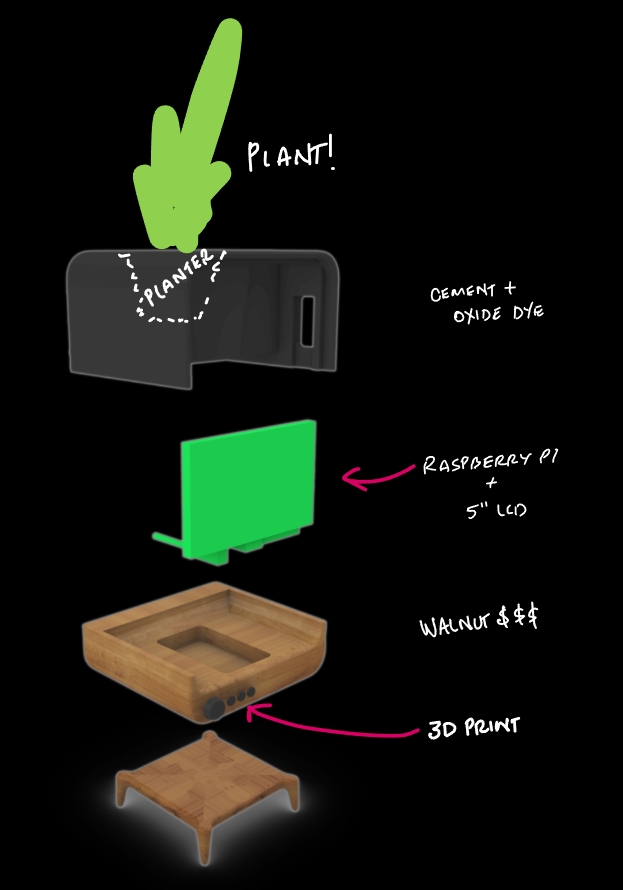 PLANT!
PLANTER
CEMENT +
OXIDE DYE
RASPBERRY PI
+
5" LCD
WALNUT $$$
3D PRINT